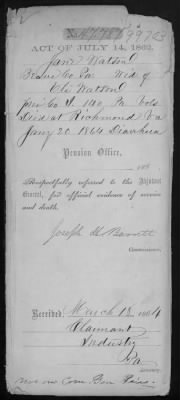 ACT OF JULY 14, 1862.
Jane Watson
Beaver Co Pa Wid of
Eli Watson
Co I. 140 Pa Vols
Died at Richmond Va
Jany 20. 1864 Diarrhea
Pension Office,
186
Respectfully referred to the Adjutant
General, for official evidence of service
and death.
Joseph H Barrett
Commissioner.
Received, March 18, 1864
Claimant
Industry
Pa
Attorney.